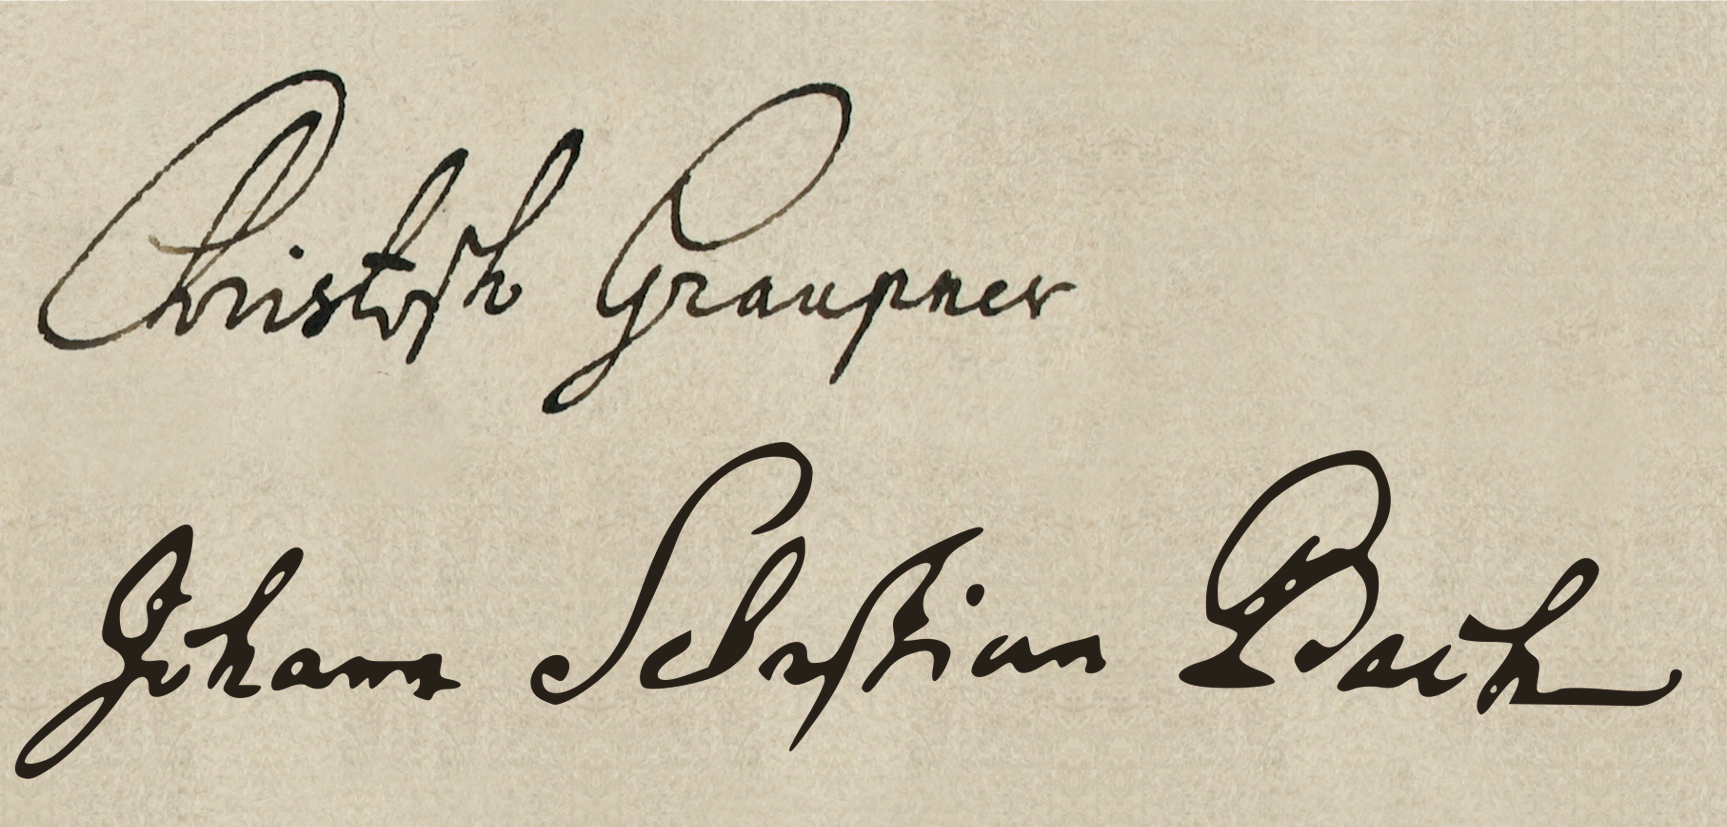 Christoph Graupner
Johann Sebastian Bach